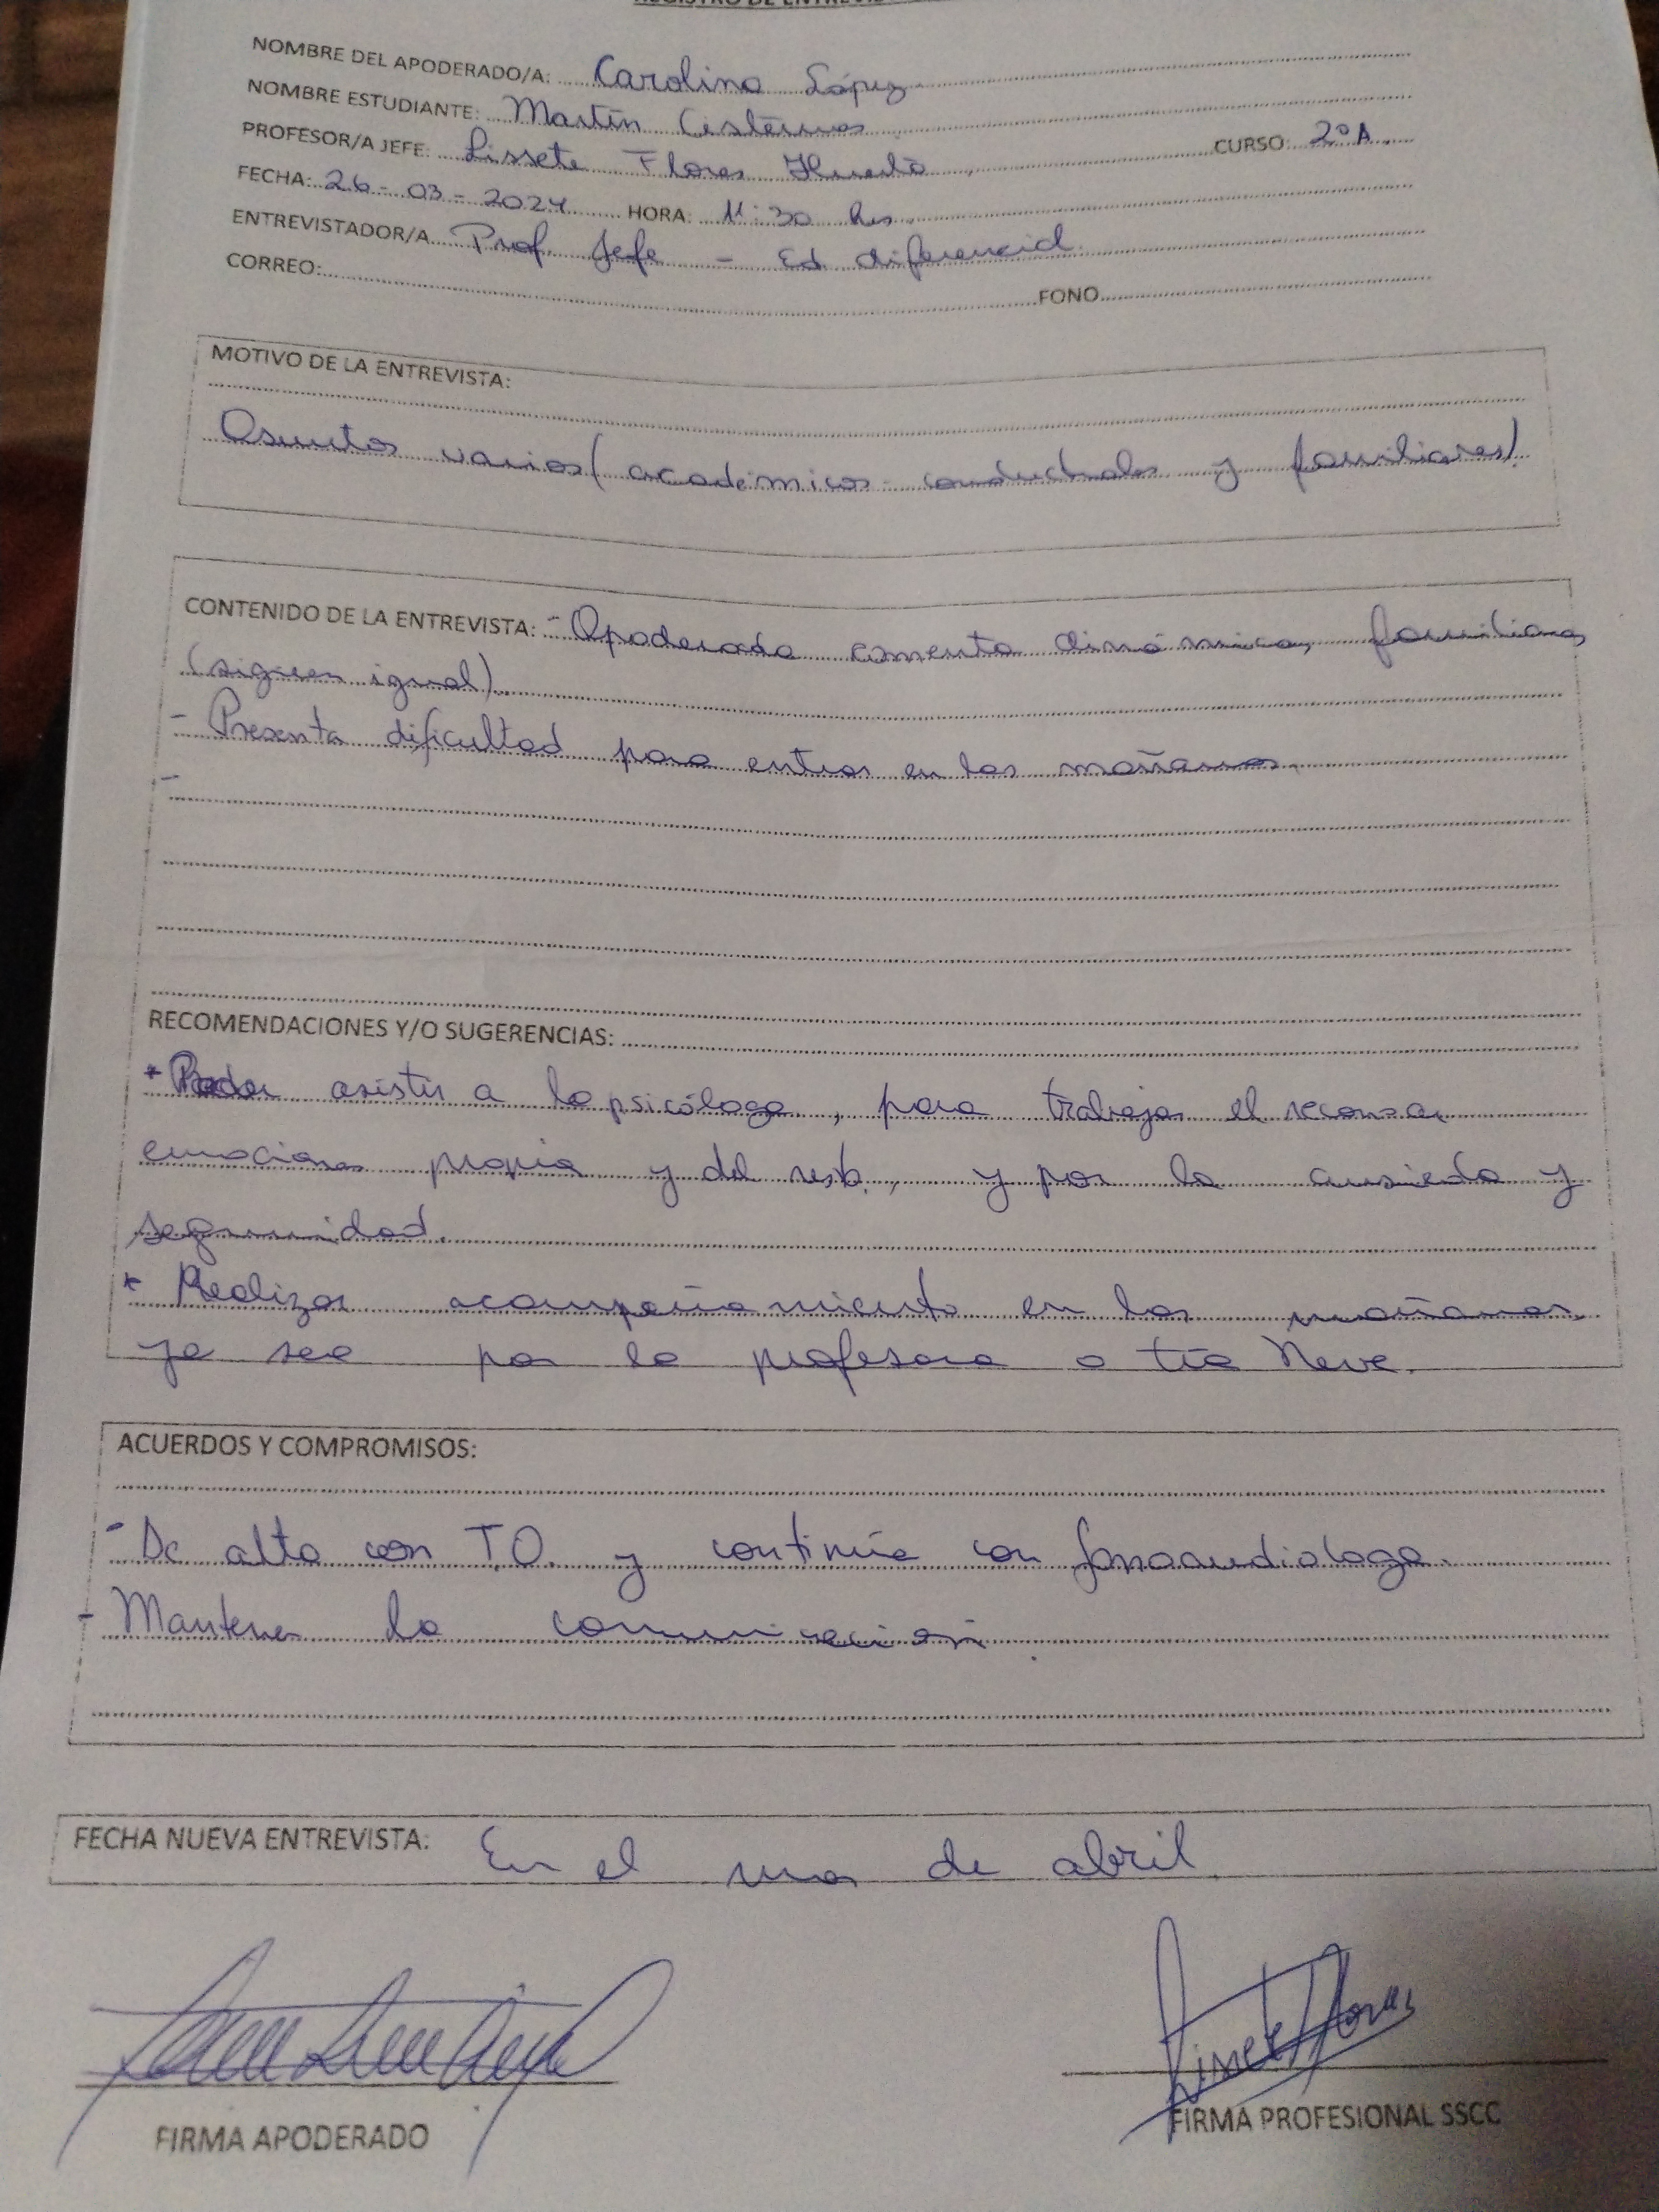 REGISTRO DE ENTREVIS
NOMBRE DEL APODERADO/A: Carolina López
NOMBRE ESTUDIANTE: Martín Cisternas
PROFESOR/A JEFE: Lissete Flores CURSO: 2º A.
FECHA: 26-03-2024 HORA: 11:30 hrs.
ENTREVISTADOR/A Prof. Jefe - Ed diferencial.
CORREO: FONO
MOTIVO DE LA ENTREVISTA:
Asuntos varios (académicos conductuales y familiares).
CONTENIDO DE LA ENTREVISTA: - Apoderada comenta dinámicas familiares
(siguen igual).
- Presenta dificultad para entrar en las mañanas.
-
RECOMENDACIONES Y/O SUGERENCIAS:
* Poder asistir a la psicóloga, para trabajar el reconocer
emociones propia y del resto, y por la ansieda y
seguridad.
* Realizar acompañamiento en las mañanas,
ya sea por la profesora o tía Neve.
ACUERDOS Y COMPROMISOS:
- De alta con T.O. y continúa con fonoaudiologa.
- Mantener la comunicación.
FECHA NUEVA ENTREVISTA: En el mes de abril.
Lissete Flores
FIRMA APODERADO FIRMA PROFESIONAL SSCC